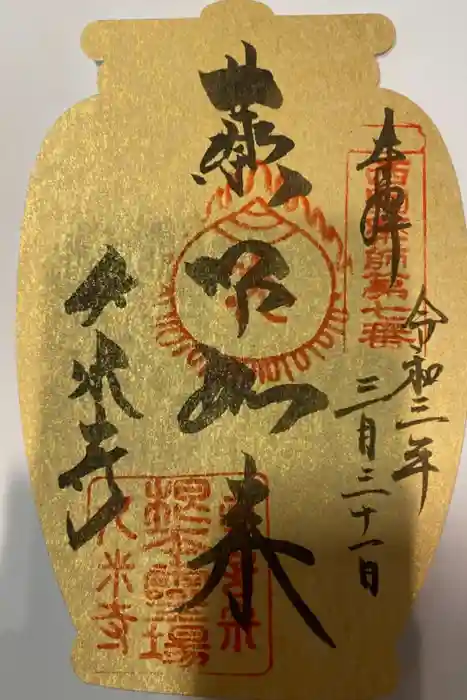 奉拝
西国薬師第七番
令和三年
三月三十一日
薬師如来
久米寺
久米寺